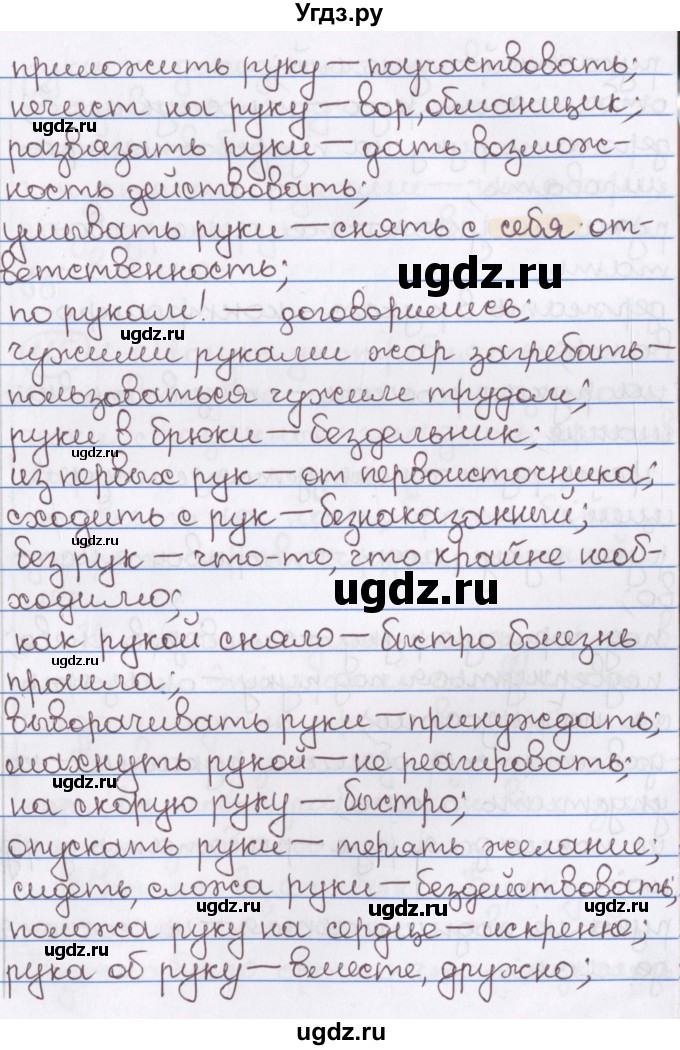 Угдз.ру
приложить руку — поучаствовать;
нечист на руку — вор, обманщик;
ugdz.ru
развязать руки — дать возмож-
ность действовать;
ugdz.ru
умывать руки — снять с себя от-
ветственность;
ugdz.ru
по рукам! — договорились;
ugdz.ru
чужими руками жар загребать —
пользоваться чужим трудом;
руки в брюки — бездельник;
ugdz.ru
из первых рук — от первоисточника;
сходить с рук — безнаказанный;
без рук — что-то, что крайне необ-
ugdz.ru
ходимо;
как рукой сняло — быстро болезнь
ugdz.ru
прошла;
выворачивать руки — принуждать;
махнуть рукой — не реагировать;
ugdz.ru
на скорую руку — быстро;
опускать руки — терять желание;
сидеть, сложа руки — бездействовать;
ugdz.ru ugdz.ru ugdz.ru
положа руку на сердце — искренне;
ugdz.ru
рука об руку — вместе, дружно;
ugdz.ru